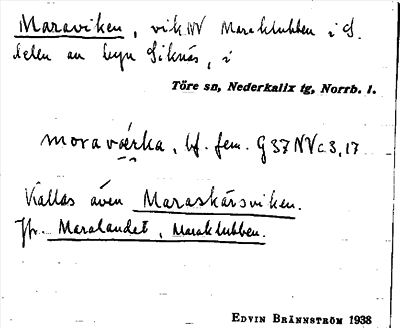 Maraviken, vik NV Maraklubben i S.
delen av byn Siknäs, i
Töre sn, Nederkalix tg, Norrb. l.
moravæ̀rka, bf. fem. G 37 NV c 3, 17
Kallas även Maraskärsviken.
Jfr. Maralandet, Maraklubben.
EDVIN BRÄNNSTRÖM 1938